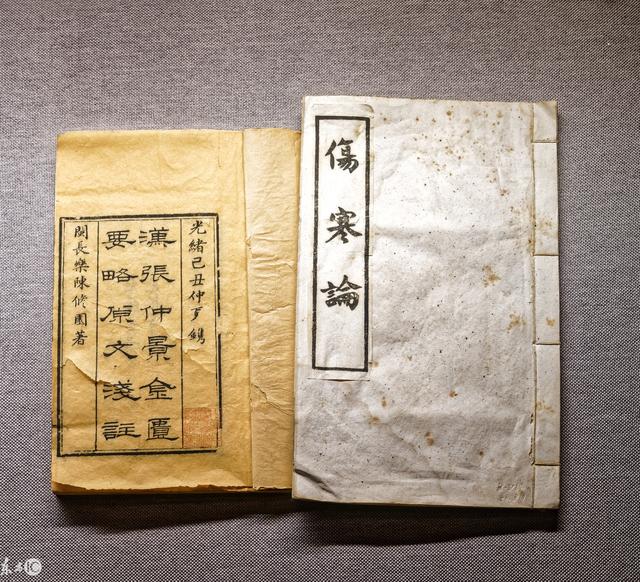 光緒己丑仲夏鐫
漢張仲景金匱
要略原文淺註
閩長樂陳修園著
傷寒論
东方IC